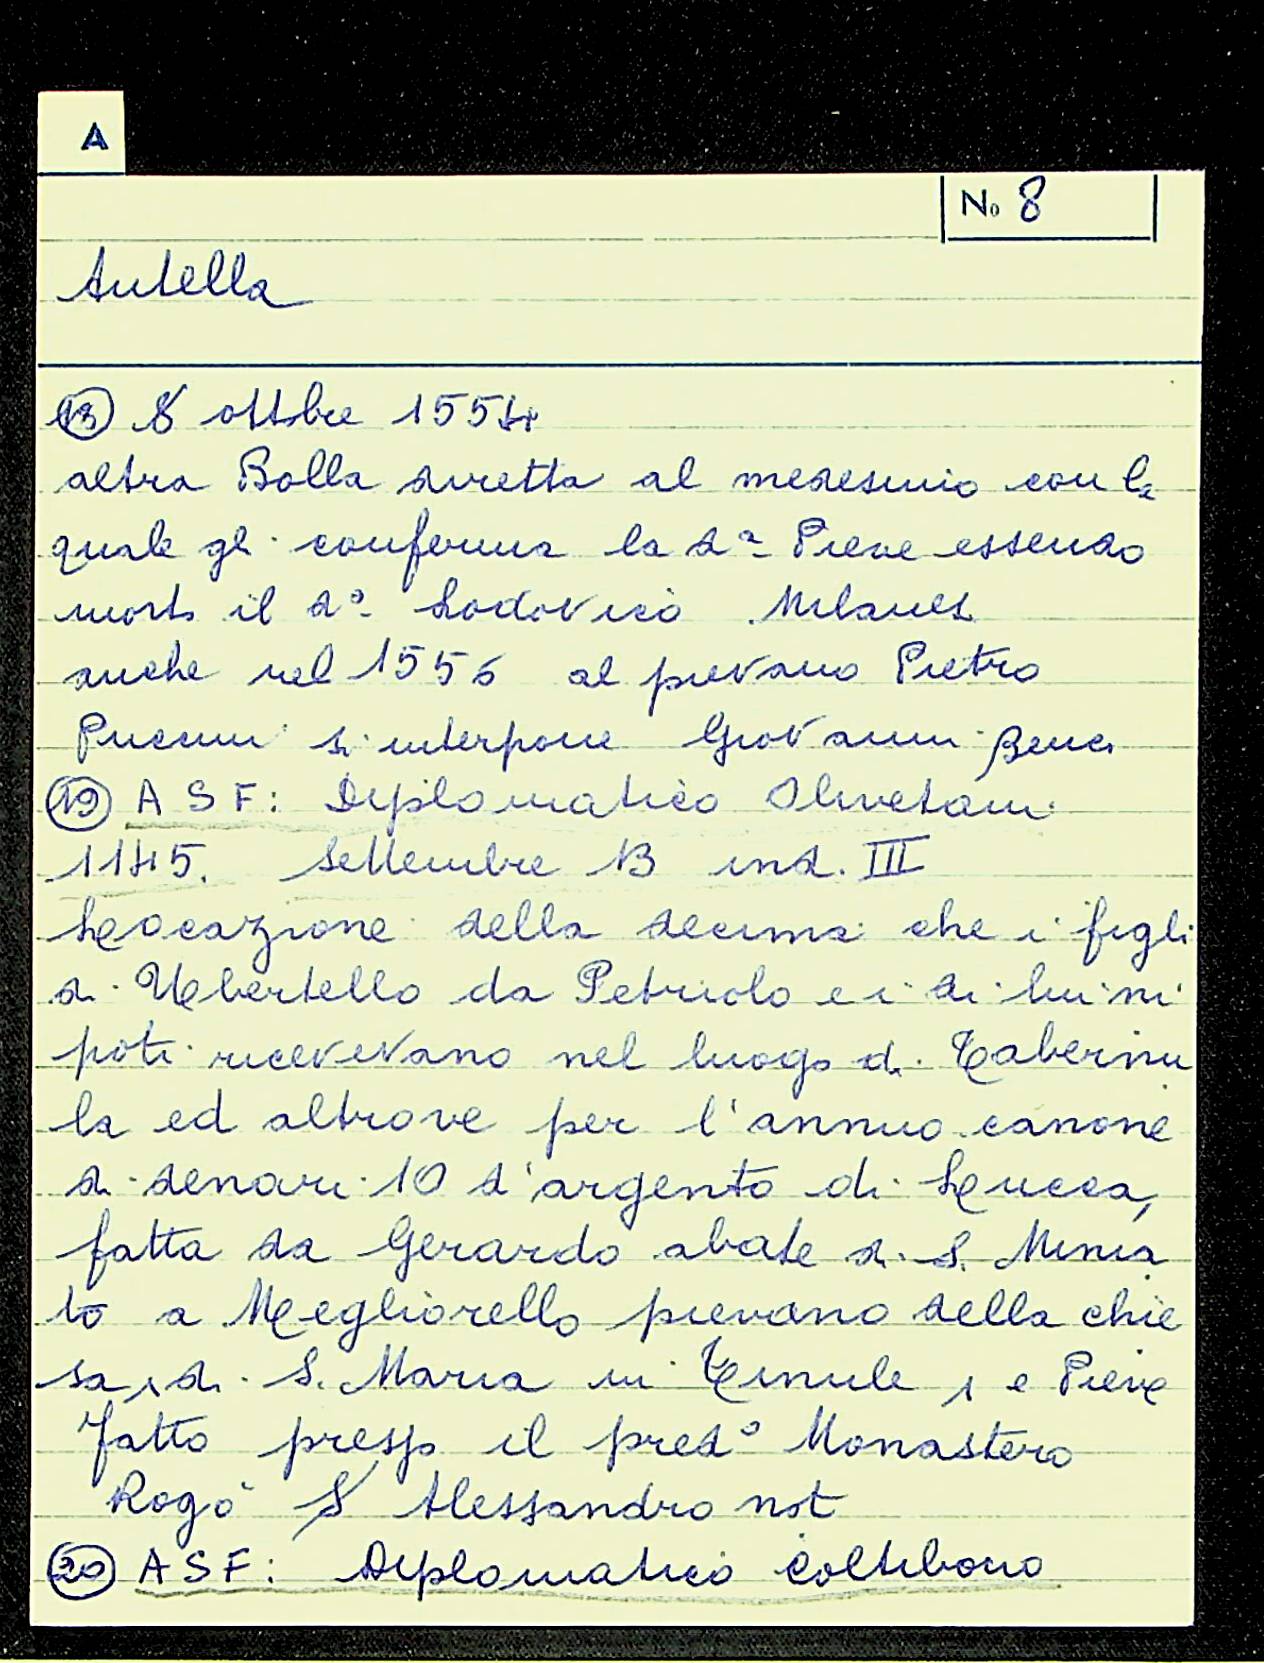 A
No 8
Antella
18 8 ottobre 1554
altra Bolla diretta al medesimo con la
quale gl. conferma la da Pieve essendo
morto il do Lodovico Milanesi
anche nel 1556 al pievano Pietro
Puccini si interpone Giovanni Benci
19 A S F: Diplomatico Olivetani
1145. Settembre 13 ind. III
Locazione della decima che i figli
di Ubertello da Petriolo e i di lui ni
poti ricevevano nel luogo di Tabernu
la ed altrove per l'annuo canone
di denari 10 d'argento di Lucca,
fatta da Gerardo abate di S. Minia
to a Megliorello pievano della chie
sa, di S. Maria in Tinule, e Pieve
Fatto presso il predo Monastero
Rogò S Alessandro not
20 A S F: Diplomatico Coltibono